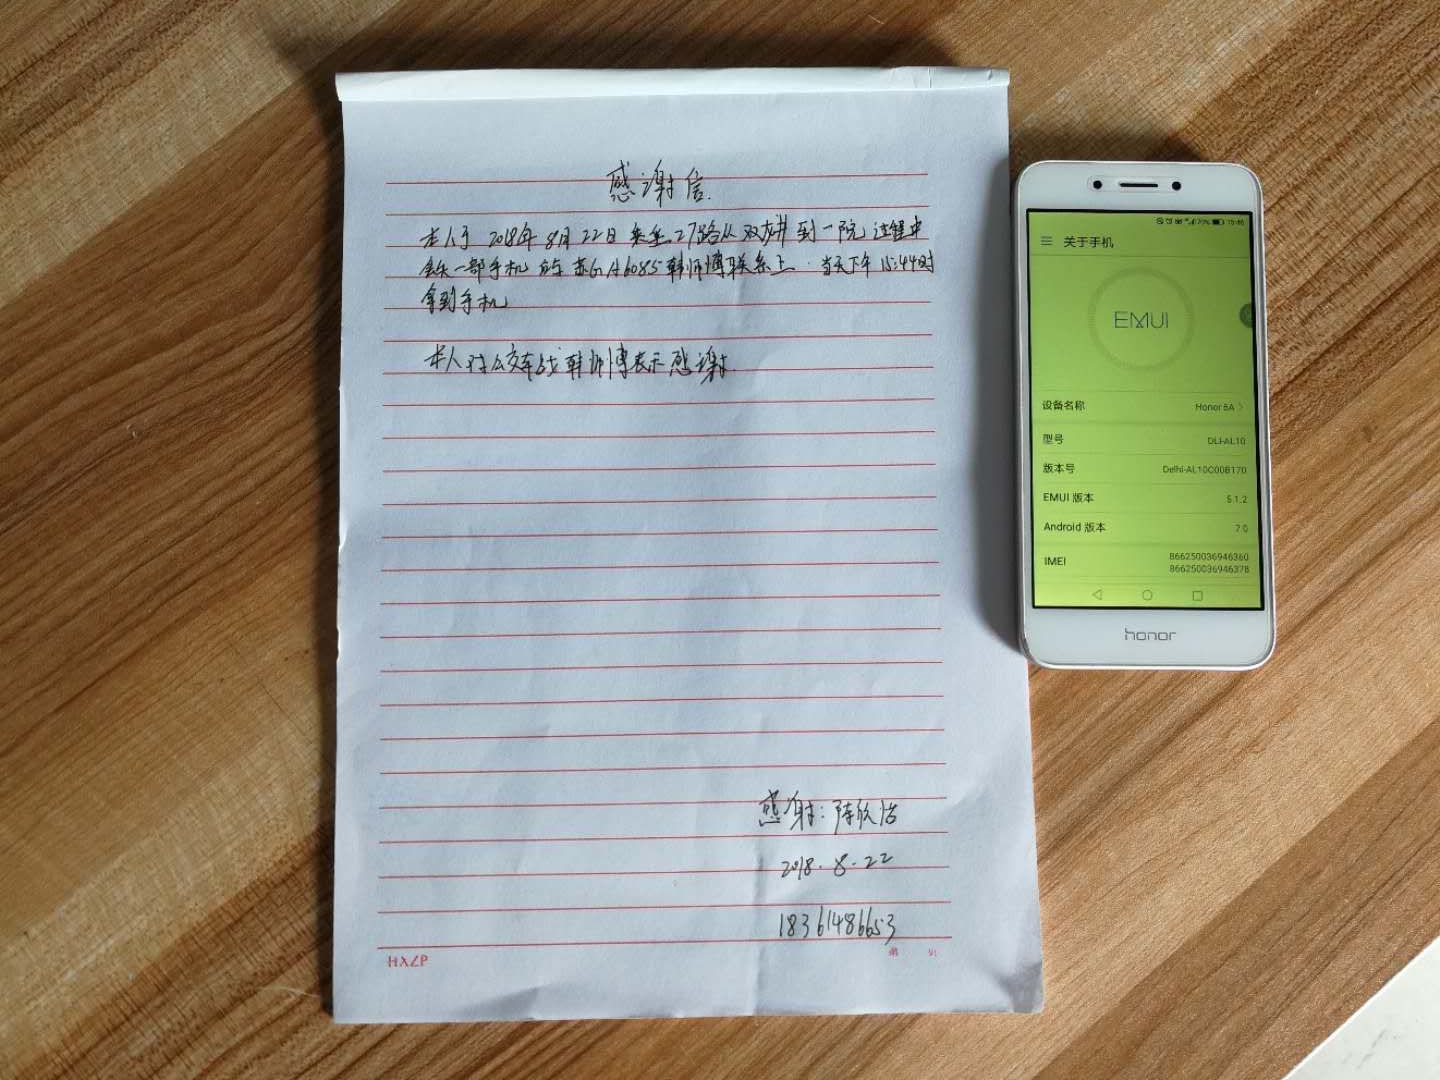 感谢信.
本人于 2018年 8月 22日 乘坐 27路从 双龙 到 一院 过程中
丢失一部手机 后与 苏GA6085韩师傅联系上. 当天下午 15:44时
拿到手机
本人对公交车 韩师傅表示感谢.
感谢: 陈欣怡
2018. 8. 22
18361486653
HXZP
第 页
75% 15:46
关于手机
EMUI
设备名称 Honor 6A
型号 DLI-AL10
版本号 Delhi-AL10C00B170
EMUI 版本 5.1.2
Android 版本 7.0
IMEI 866250036946360
866250036946378
honor